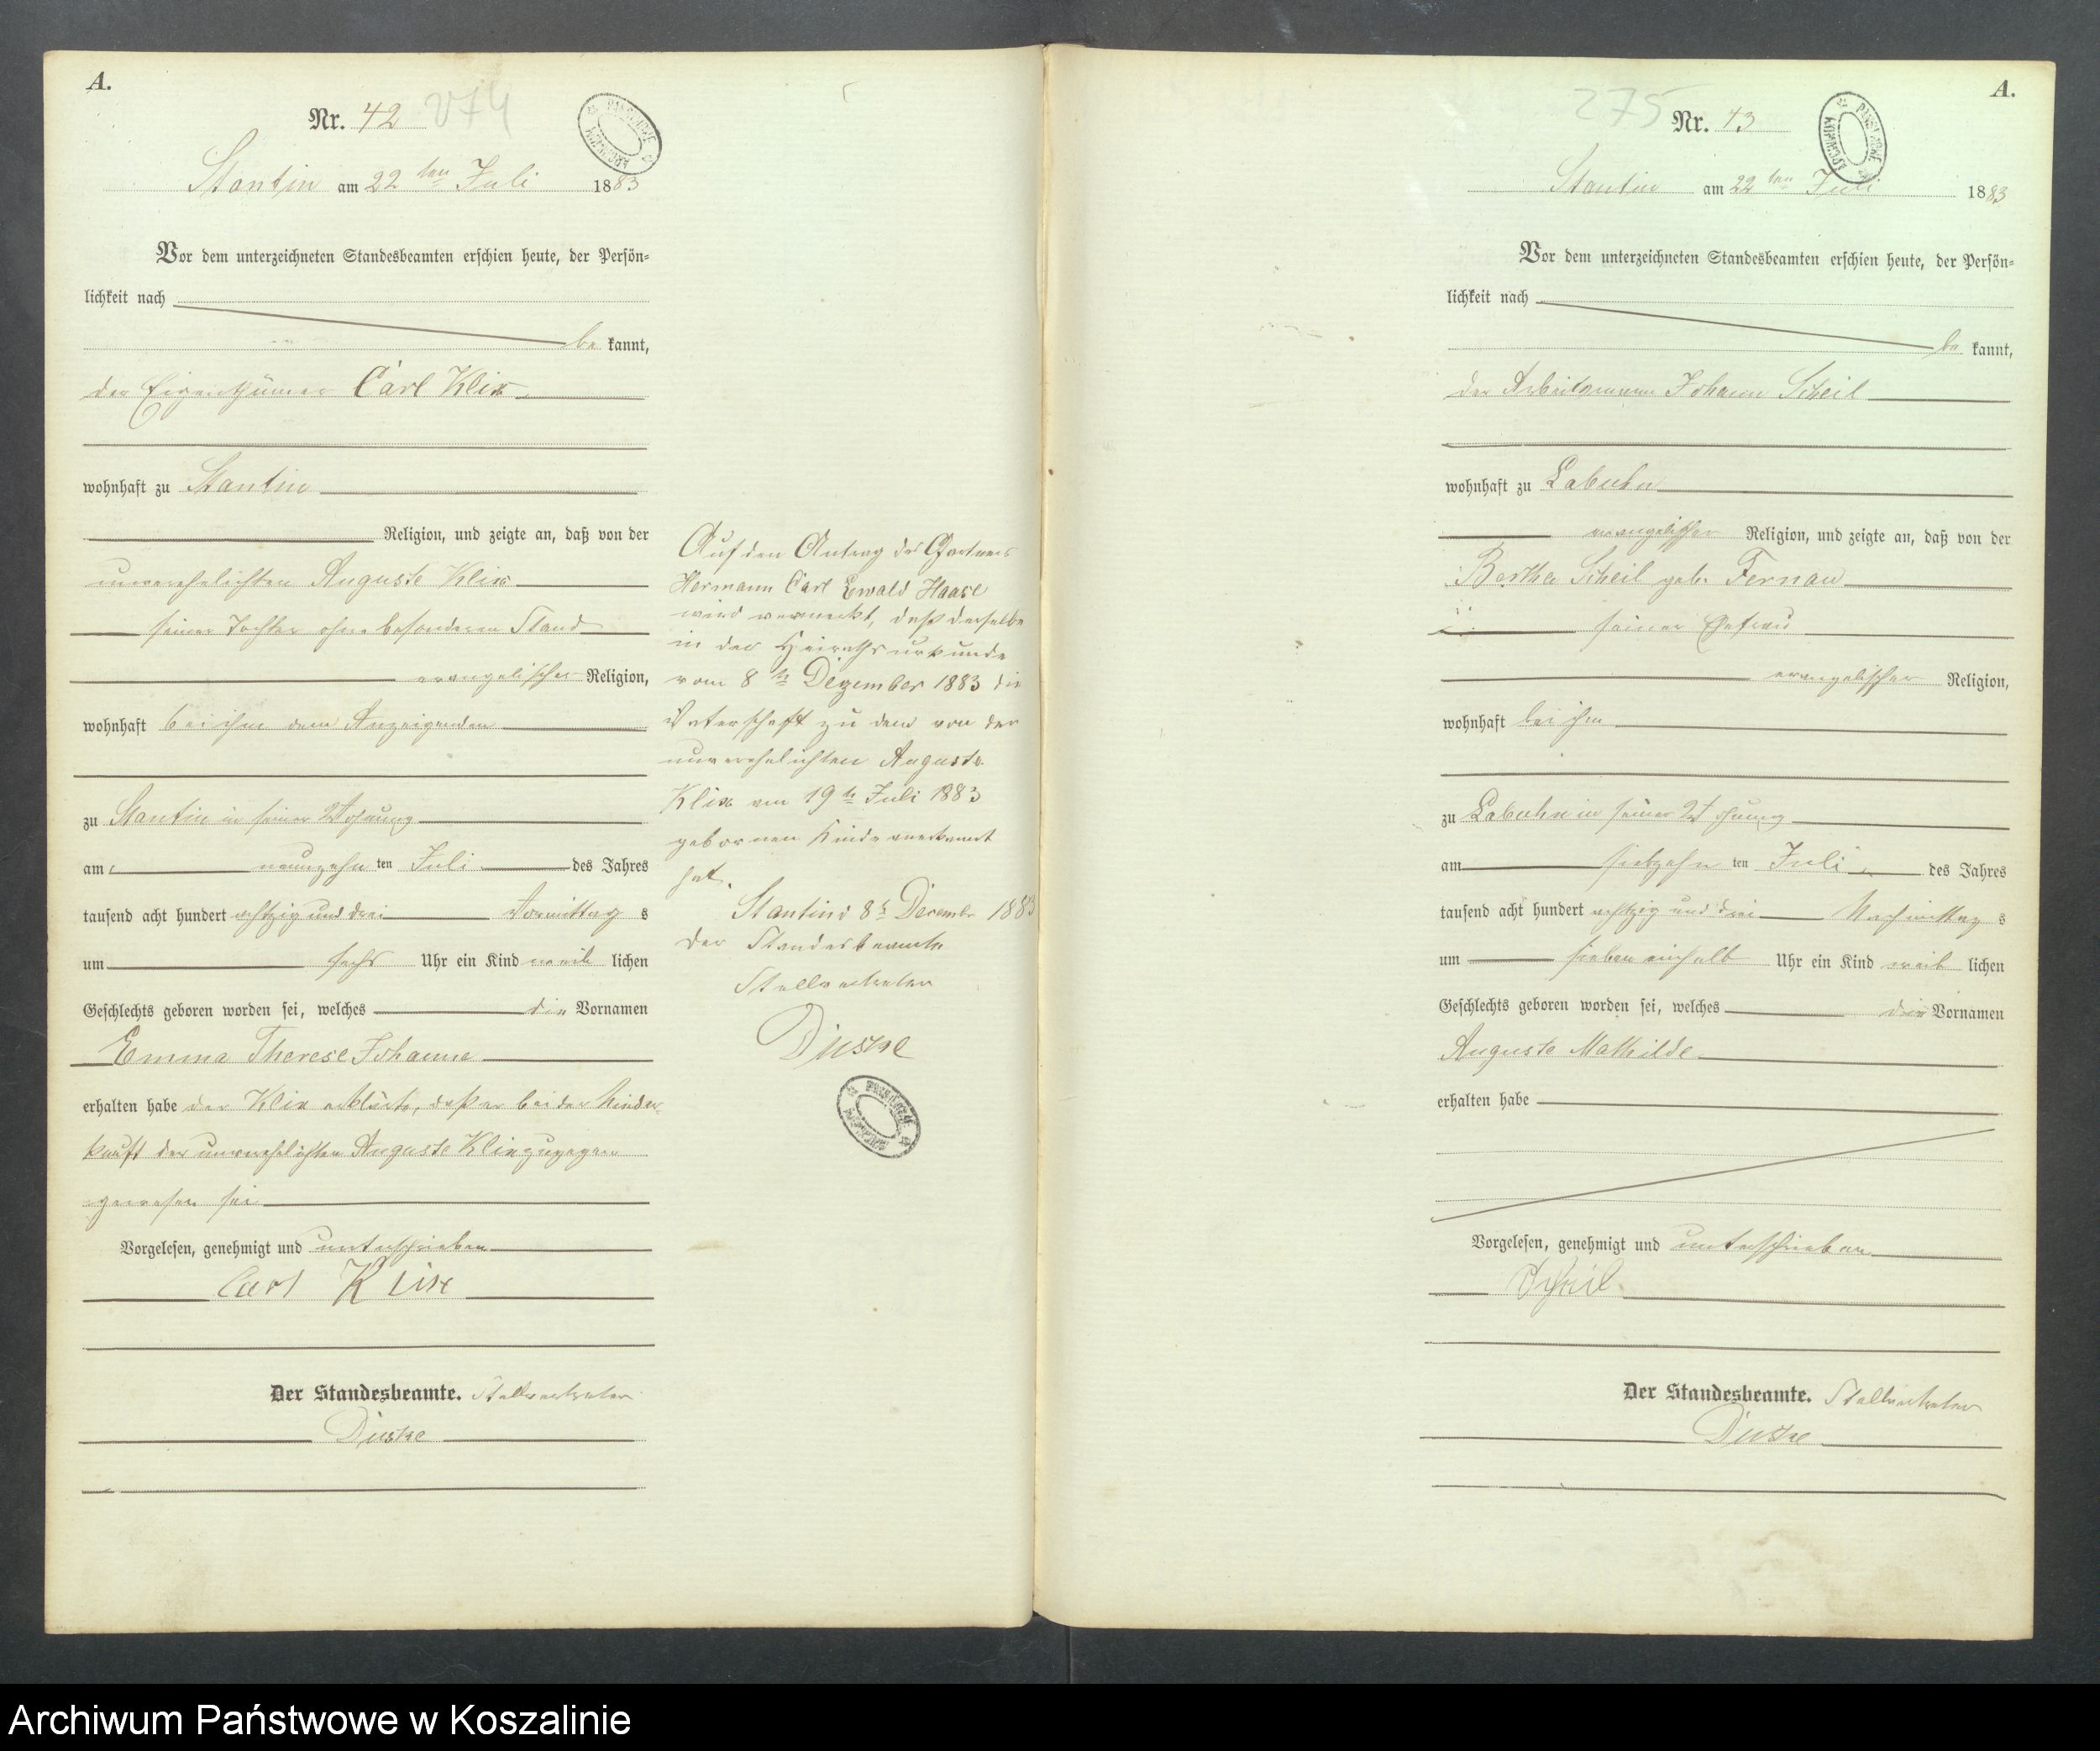 A.
Nr. 42 274
Stantin am 22 ten Juli 1883
Vor dem unterzeichneten Standesbeamten erschien heute, der Persön=
lichkeit nach
be kannt,
der Eigenthümer Carl Klix
wohnhaft zu Stantin
Religion, und zeigte an, daß von der
unverehelichten Auguste Klix
seiner Tochter ohne besonderen Stand
evangelischer Religion,
wohnhaft bei ihm dem Anzeigenden
zu Stantin in seiner Wohnung
am neunzehn ten Juli des Jahres
tausend acht hundert achtzig und drei Vormittag s
um sechs Uhr ein Kind weib lichen
Geschlechts geboren worden sei, welches die Vornamen
Emma Therese Johanne
erhalten habe der Klix erklärte, daß er bei der Nieder-
kunft der unverehelichten Auguste Klix zugegen
gewesen sei
Vorgelesen, genehmigt und unterschrieben
Carl Klix
Der Standesbeamte. Stellvertreter
Duske
Auf den Antrag des Gärtners
Hermann Carl Ewald Haase
wird vermerkt, daß derselbe
in der Heirathsurkunde
vom 8 ten Dezember 1883 die
Vaterschaft zu dem von der
unverehelichten Auguste
Klix am 19 ten Juli 1883
gebornen Kinde anerkannt
hat.
Stantin 8 Decembr 1883
Der Standesbeamte
Stellvertreter
Duske
A.
275 Nr. 43
Stantin am 22 ten Juli 1883
Vor dem unterzeichneten Standesbeamten erschien heute, der Persön=
lichkeit nach
be kannt,
der Arbeitsmann Johann Scheil
wohnhaft zu Labuhn
evangelischer Religion, und zeigte an, daß von der
Bertha Scheil geb. Fernau
seiner Ehefrau
evangelischer Religion,
wohnhaft bei ihm
zu Labuhn in seiner Wohnung
am siebzehn ten Juli des Jahres
tausend acht hundert achtzig und drei Nachmittag s
um sieben einhalb Uhr ein Kind weib lichen
Geschlechts geboren worden sei, welches die Vornamen
Auguste Mathilde
erhalten habe
Vorgelesen, genehmigt und unterschrieben
Scheil
Der Standesbeamte. Stellvertreter
Duske
Archiwum Państwowe w Koszalinie